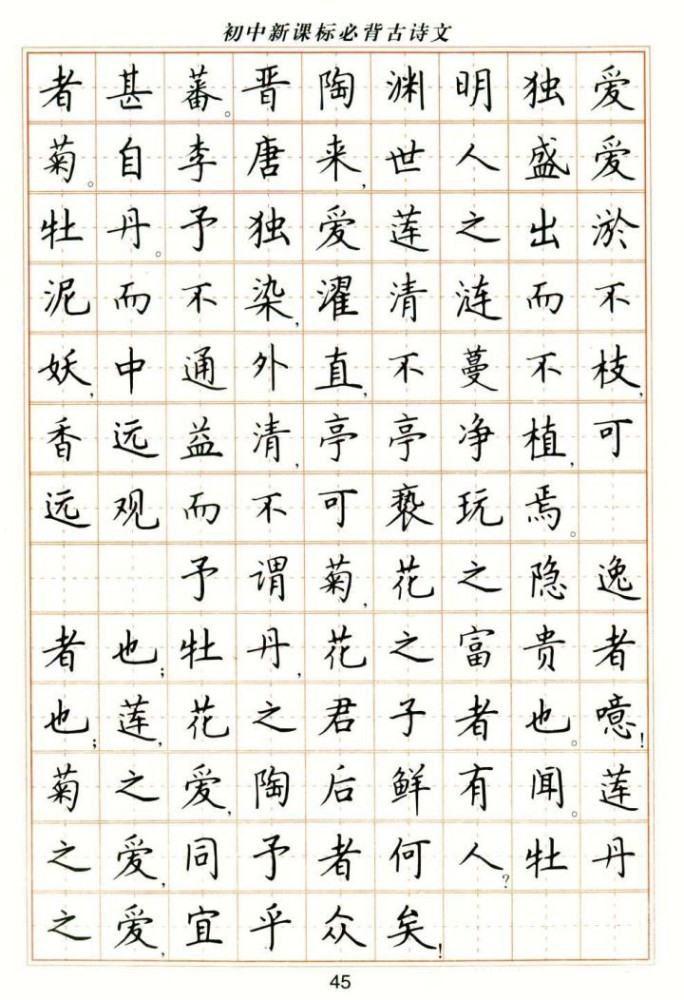 初中新课标必背古诗文
者甚蕃。晋陶渊明独爱
菊。自李唐来,世人盛爱
牡丹。予独爱莲之出淤
泥而不染,濯清涟而不
妖,中通外直,不蔓不枝,
香远益清,亭亭净植,可
远观而不可亵玩焉。
予谓菊,花之隐逸
者也;牡丹,花之富贵者
也;莲,花之君子者也。噫!
菊之爱,陶后鲜有闻。莲
之爱,同予者何人?牡丹
之爱,宜乎众矣!
45